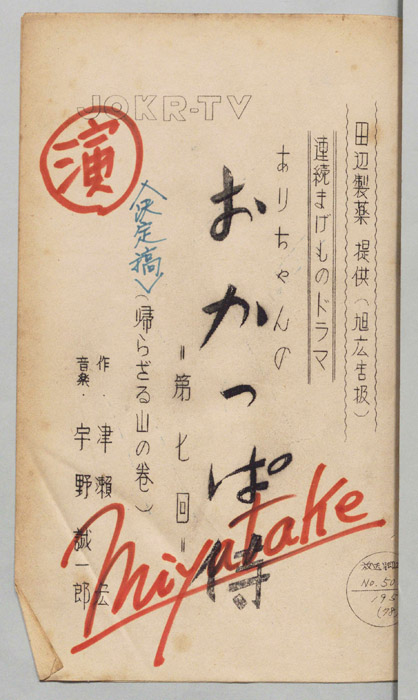 JOKR-TV
田辺製薬 提供(旭広告扱)
連続まげものドラマ
ありちゃんの
おかっぱ侍
=第七回=
(帰らざる山の巻)
〈決定稿〉
作・津瀬 宏
音楽・宇野誠一郎
演
Miyatake
No. 50
195